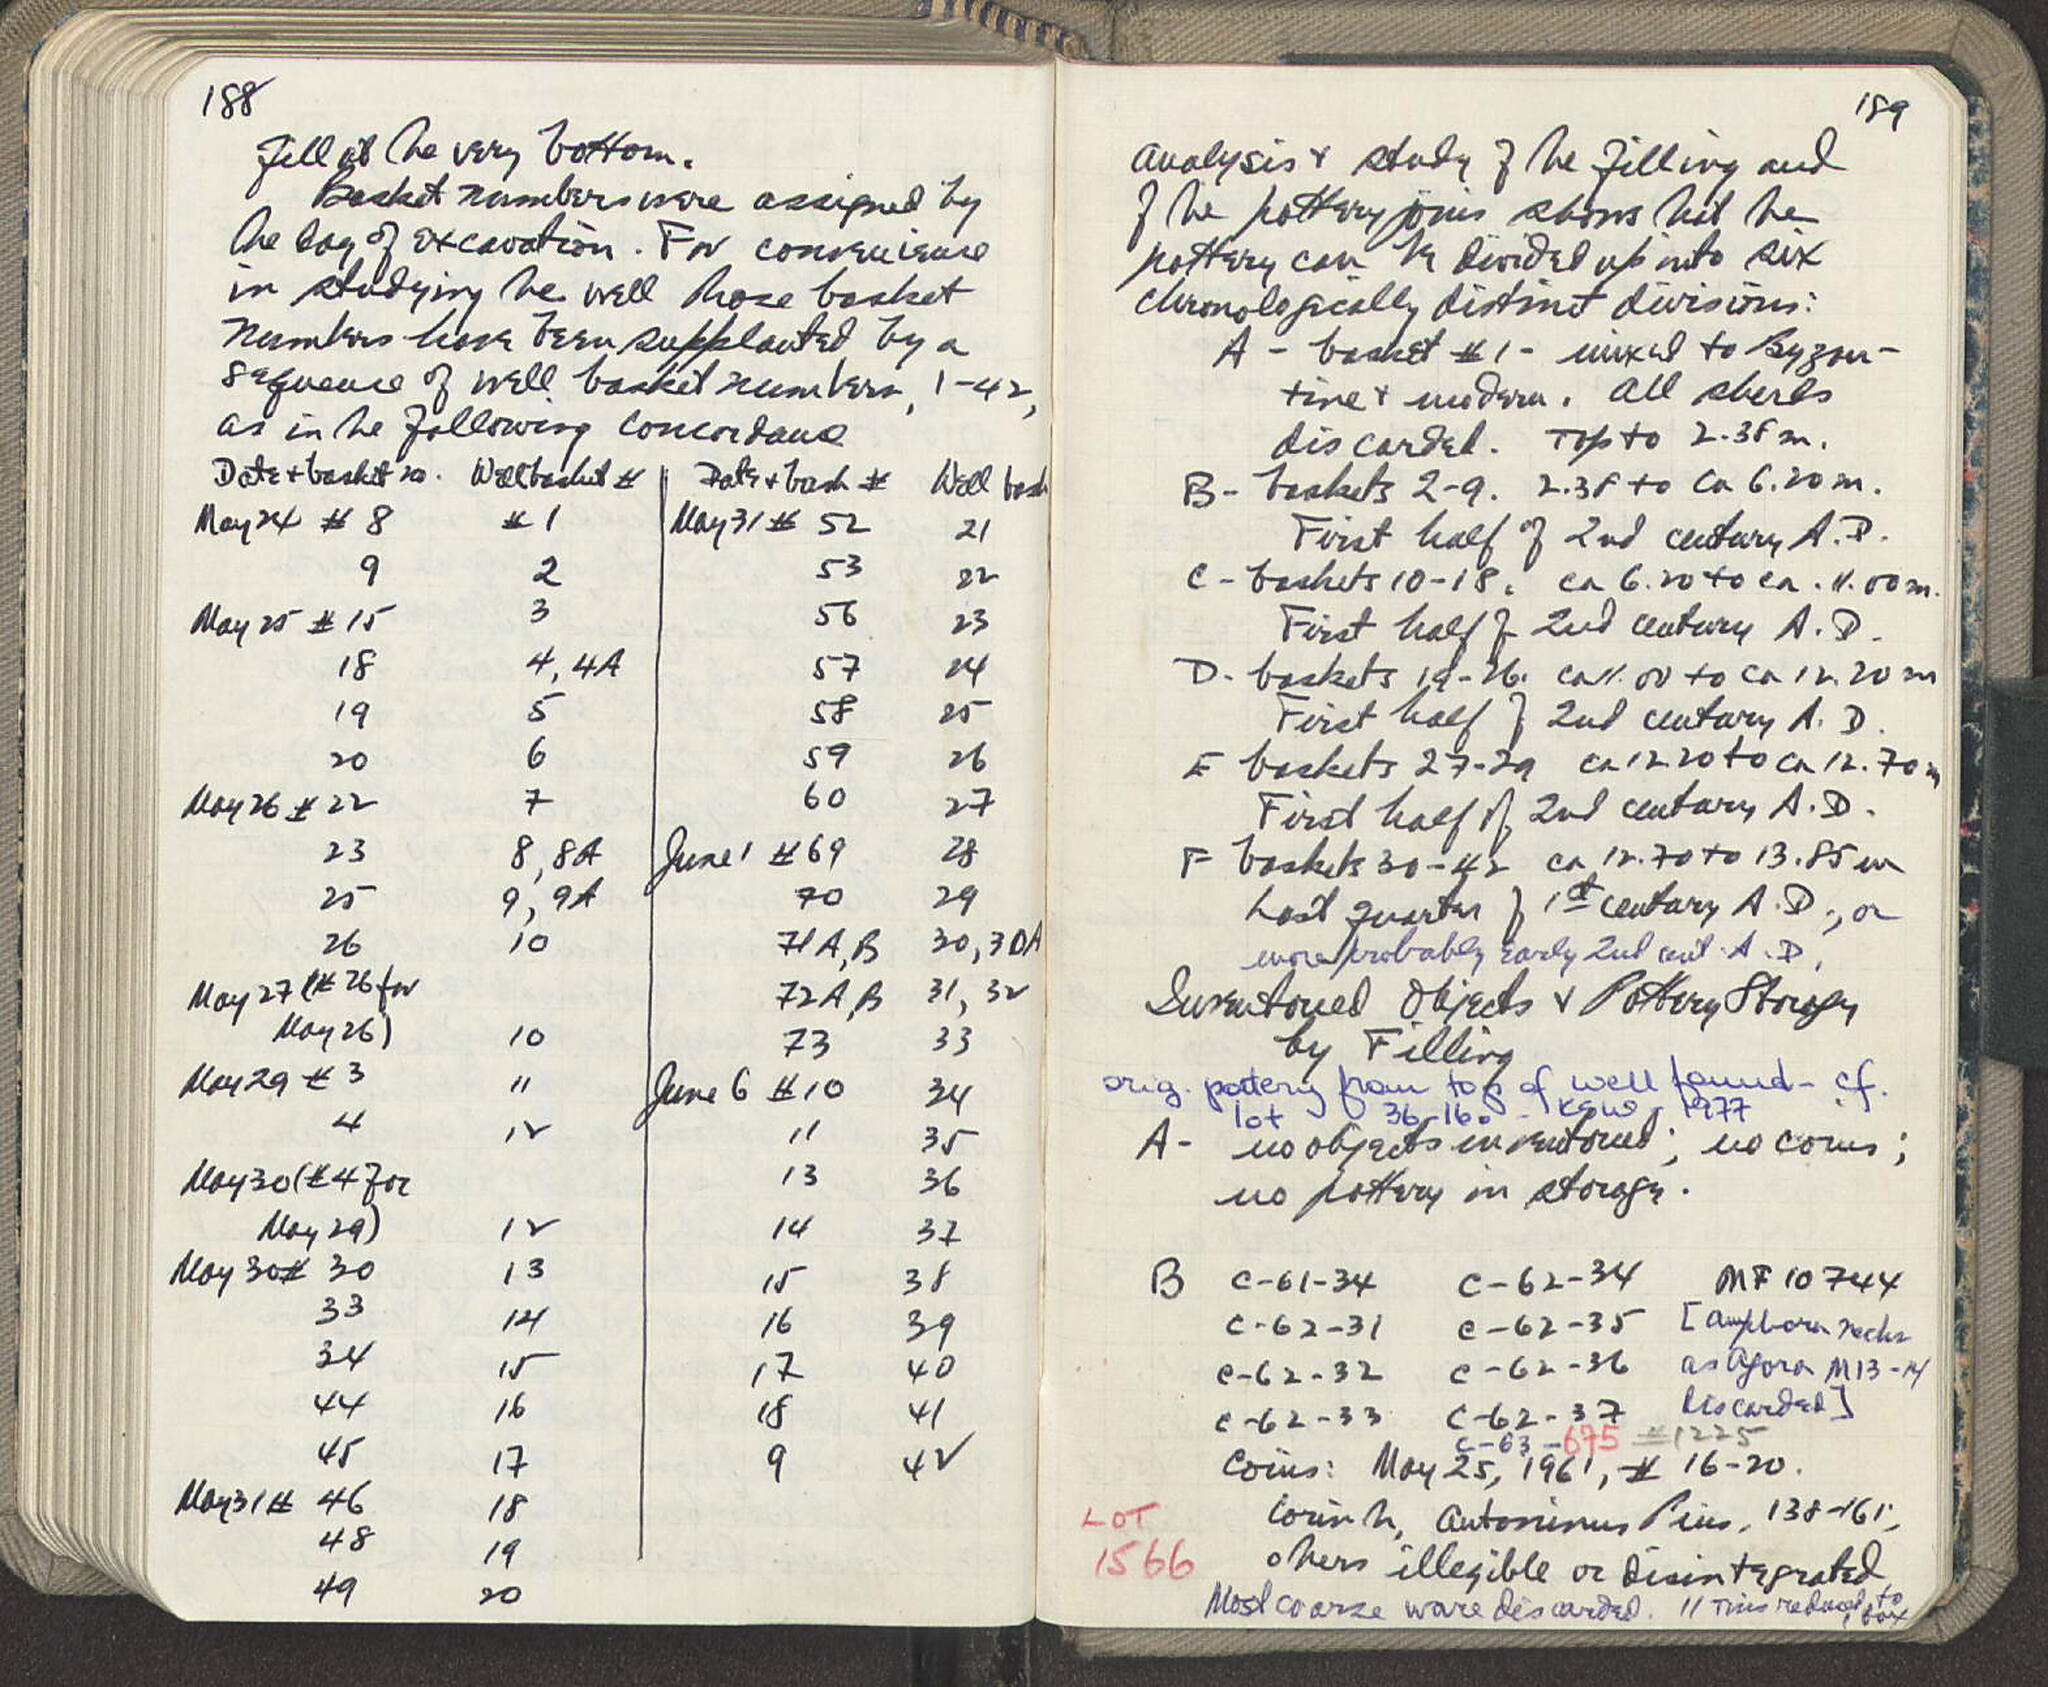 188
fill at the very bottom.
Basket numbers were assigned by
the day of excavation. For convenience
in studying the well those basket
numbers have been supplanted by a
sequence of well basket numbers, 1-42,
as in the following concordance
Date + basket no. Well basket # Date + bask # Well bask
May 24 # 8 # 1 May 31 # 52 21
9 2 53 22
May 25 # 15 3 56 23
18 4, 4A 57 24
19 5 58 25
20 6 59 26
May 26 # 22 7 60 27
23 8, 8A June 1 # 69 28
25 9, 9A 70 29
26 10 71 A, B 30, 30A
May 27 (# 26 for 72 A, B 31, 32
May 26) 10 73 33
May 29 # 3 11 June 6 # 10 34
4 12 11 35
May 30 (# 4 for 13 36
May 29) 12 14 37
May 30 # 30 13 15 38
33 14 16 39
34 15 17 40
44 16 18 41
45 17 9 42
May 31 # 46 18
48 19
49 20
189
analysis + study of the filling and
of the pottery joins shows that the
pottery can be divided up into six
chronologically distinct divisions:
A - basket # 1 - mixed to Byzan-
tine + modern. All sherds
discarded. Top to 2.38 m.
B - baskets 2-9. 2.38 to ca 6.20 m.
First half of 2nd century A.D.
C - baskets 10-18. ca 6.20 to ca. 11.00 m.
First half of 2nd century A.D.
D - baskets 19-26. ca 11.00 to ca 12.20 m
First half of 2nd century A.D.
E baskets 27-29 ca 12.20 to ca 12.70 m
First half of 2nd century A.D.
F baskets 30-42 ca 12.70 to 13.85 m
Last quarter of 1st century A.D., or
more probably early 2nd cent. A.D.
Inventoried Objects + Pottery Storage
by Filling
orig. pottery from top of well found - cf.
lot 36-160 - KSW - 1977
A - no objects inventoried; no coins;
no pottery in storage.
B C-61-34 C-62-34 MF 10744
C-62-31 C-62-35 [Amphora necks
C-62-32 C-62-36 as Agora M13-14
C-62-33 C-62-37 discarded]
C-63-675 #1225
Coins: May 25, 1961, # 16-20.
Corinth, Antoninus Pius, 138-161;
LOT
1566
others illegible or disintegrated
Most coarse ware discarded. 11 Tins reduced to
1 box